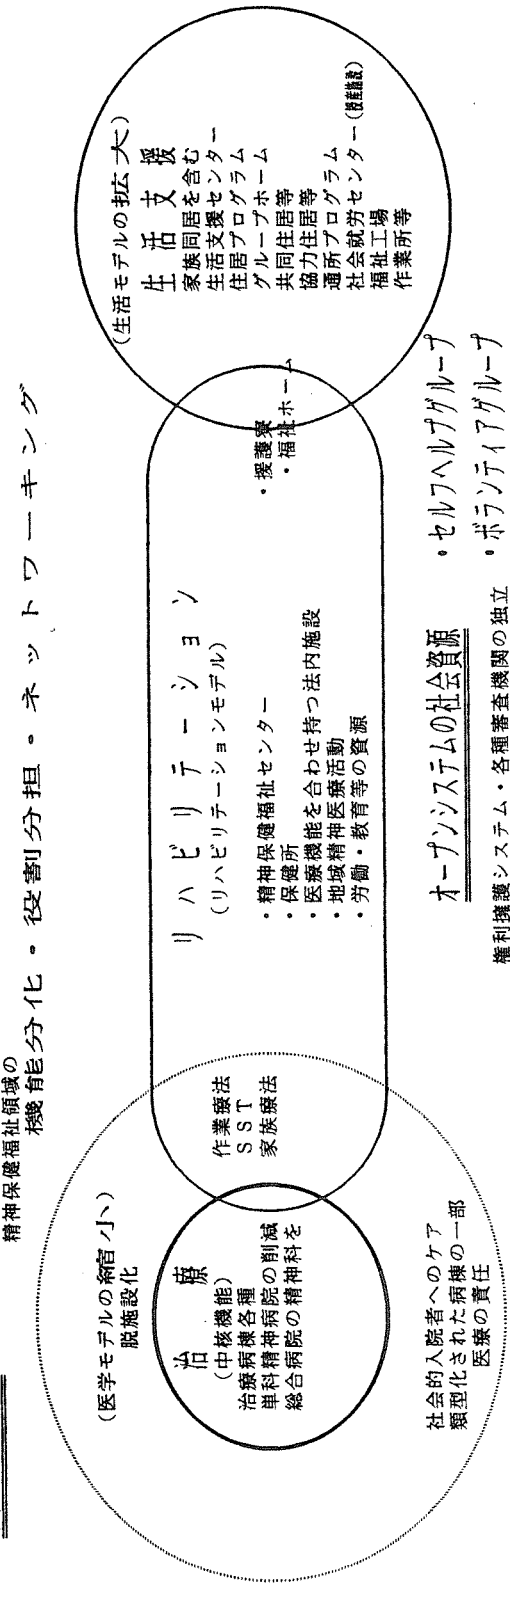 精神保健福祉領域の
機能分化・役割分担・ネットワーキング
(医学モデルの縮小)
脱施設化
治療
(中核機能)
治療病棟各種
単科精神病院の削減
総合病院の精神科を
社会的入院者へのケア
類型化された病棟の一部
医療の責任
作業療法
SST
家族療法
リハビリテーション
(リハビリテーションモデル)
・精神保健福祉センター
・保健所
・医療機能を合わせ持つ法内施設
・地域精神医療活動
・労働・教育等の資源
・援護寮
・福祉ホーム
(生活モデルの拡大)
生活支援
家族同居を含む
生活支援センター
住居プログラム
グループホーム
共同住居等
協力住居等
通所プログラム
社会就労センター(授産施設)
福祉工場
作業所等
オープンシステムの社会資源
・セルフヘルプグループ
・ボランティアグループ
権利擁護システム・各種審査機関の独立